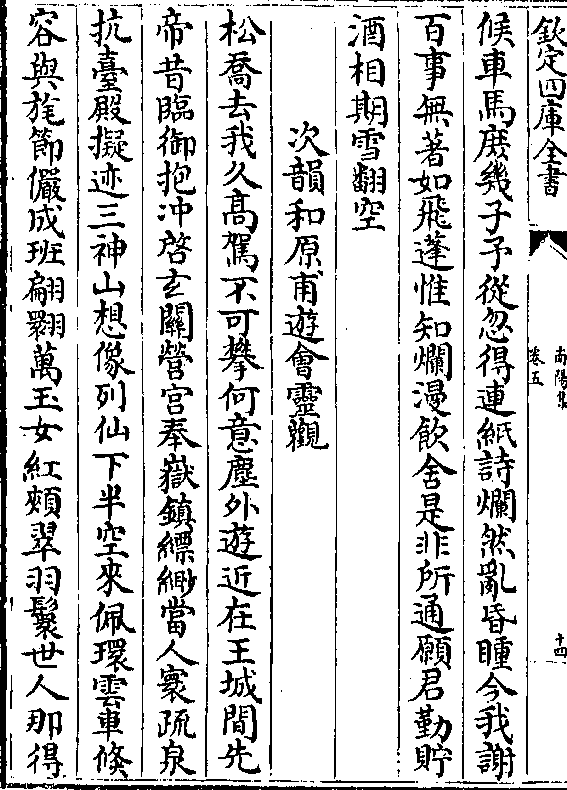 欽定四庫全書
南陽集
卷五
十四
候車馬庶幾子予從忽得連紙詩爛然亂昏瞳今我謝
百事無著如飛蓬惟知爛漫飲舍是非所通願君勤貯
酒相期雪翻空
次韻和原甫遊會靈觀
松喬去我久髙駕不可攀何意塵外遊近在王城間先
帝昔臨御抱冲啓玄關營宫奉嶽鎮縹緲當人寰疏泉
抗臺殿擬迹三神山想像列仙下半空來佩環雲車倏
容與旄節儼成班翩翾萬玉女紅頰翠羽鬟世人那得